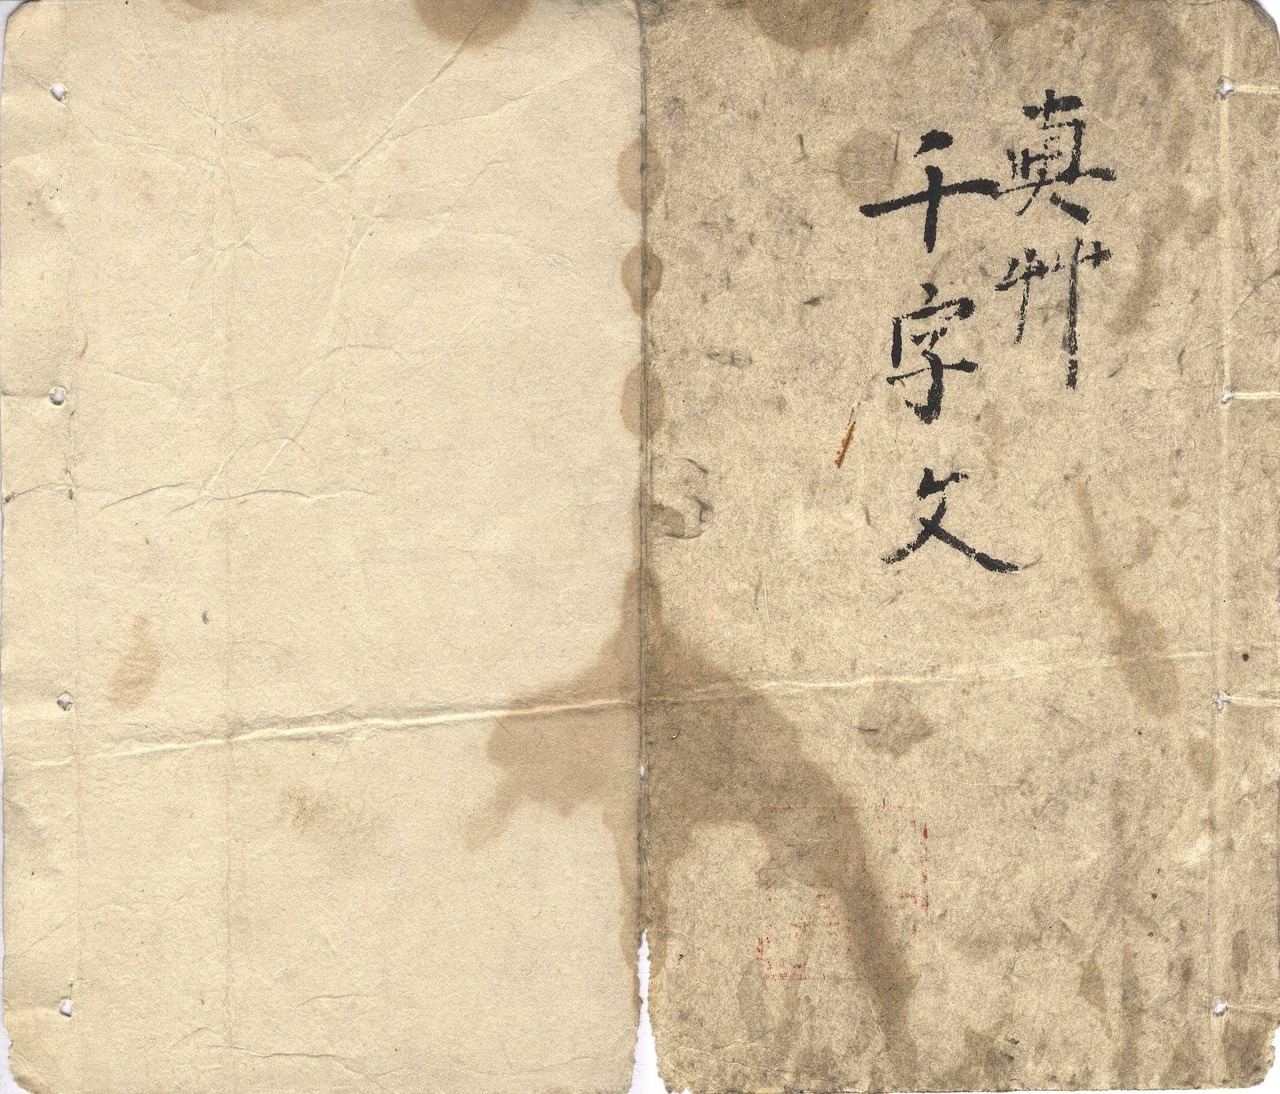 真艸
千字文